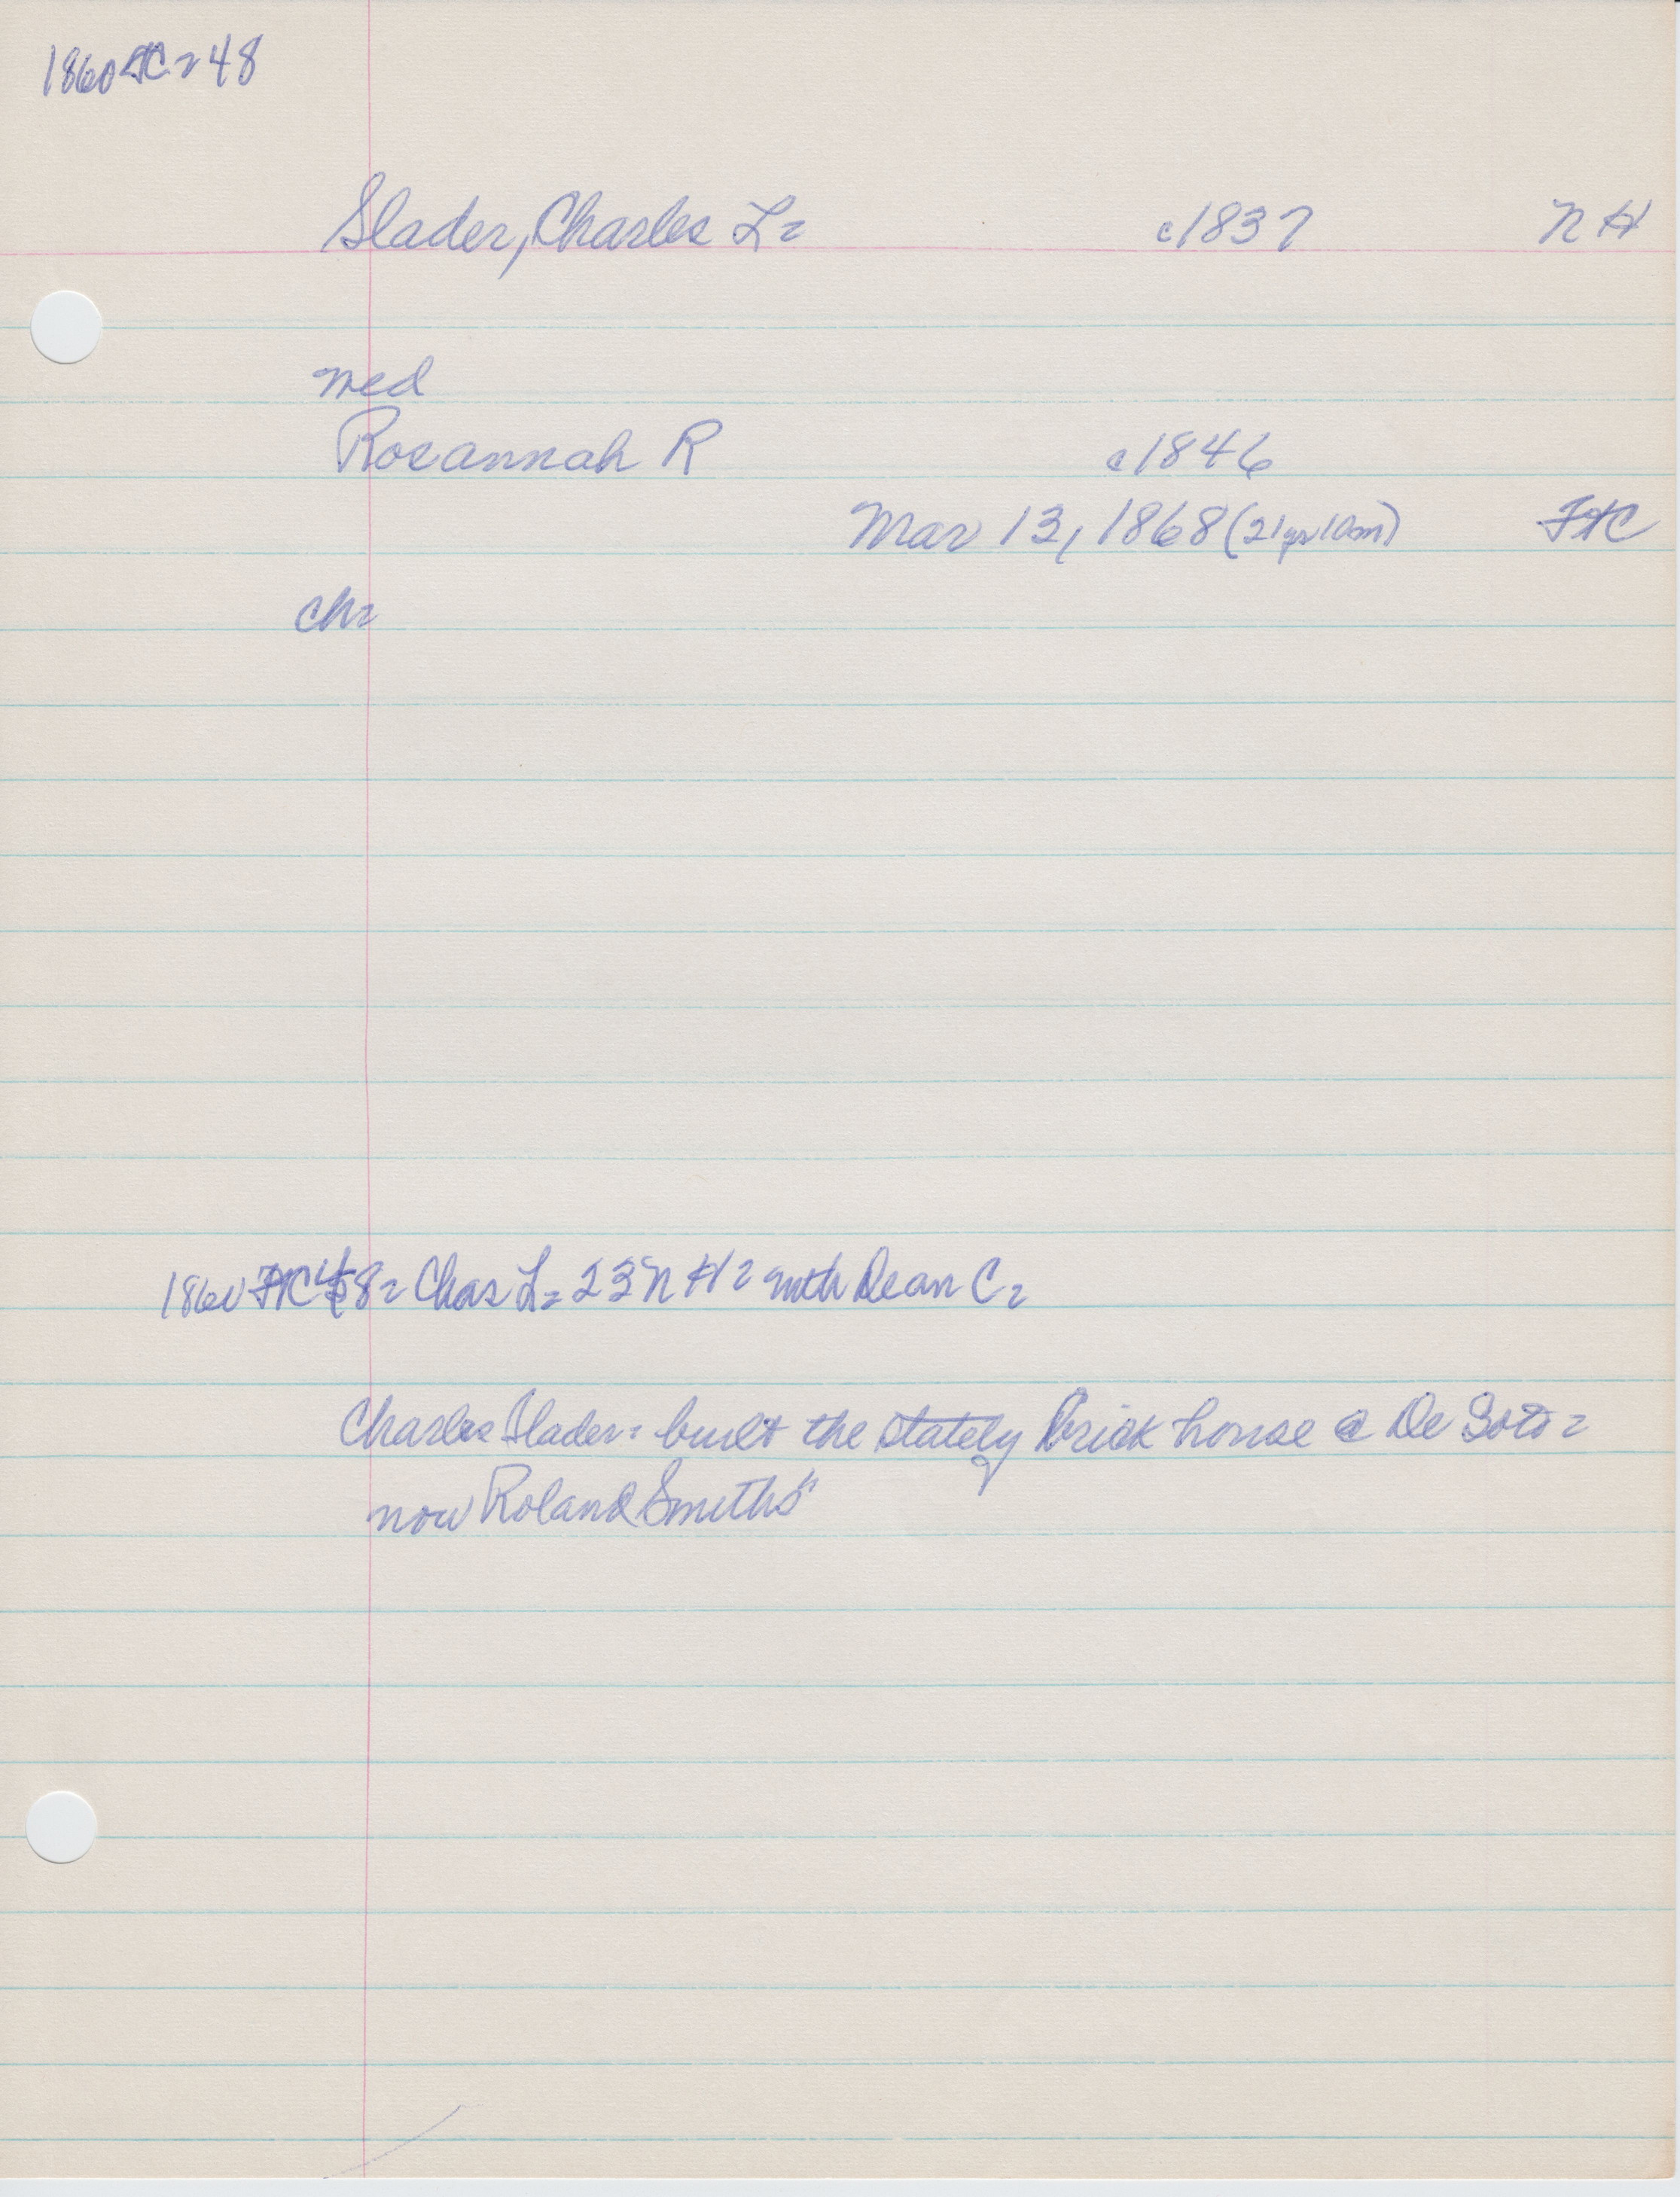 1860 FtC = 48
Slader, Charles L = c1837 N H
med
Rosannah R c1846
Mar 13, 1868 (21yr 10m) FtC
ch =
1860 FtC 48 = Chas L = 23 N H = with Dean C =
Charles Slader = built the stately brick house @ De Soto =
now Roland Smiths"